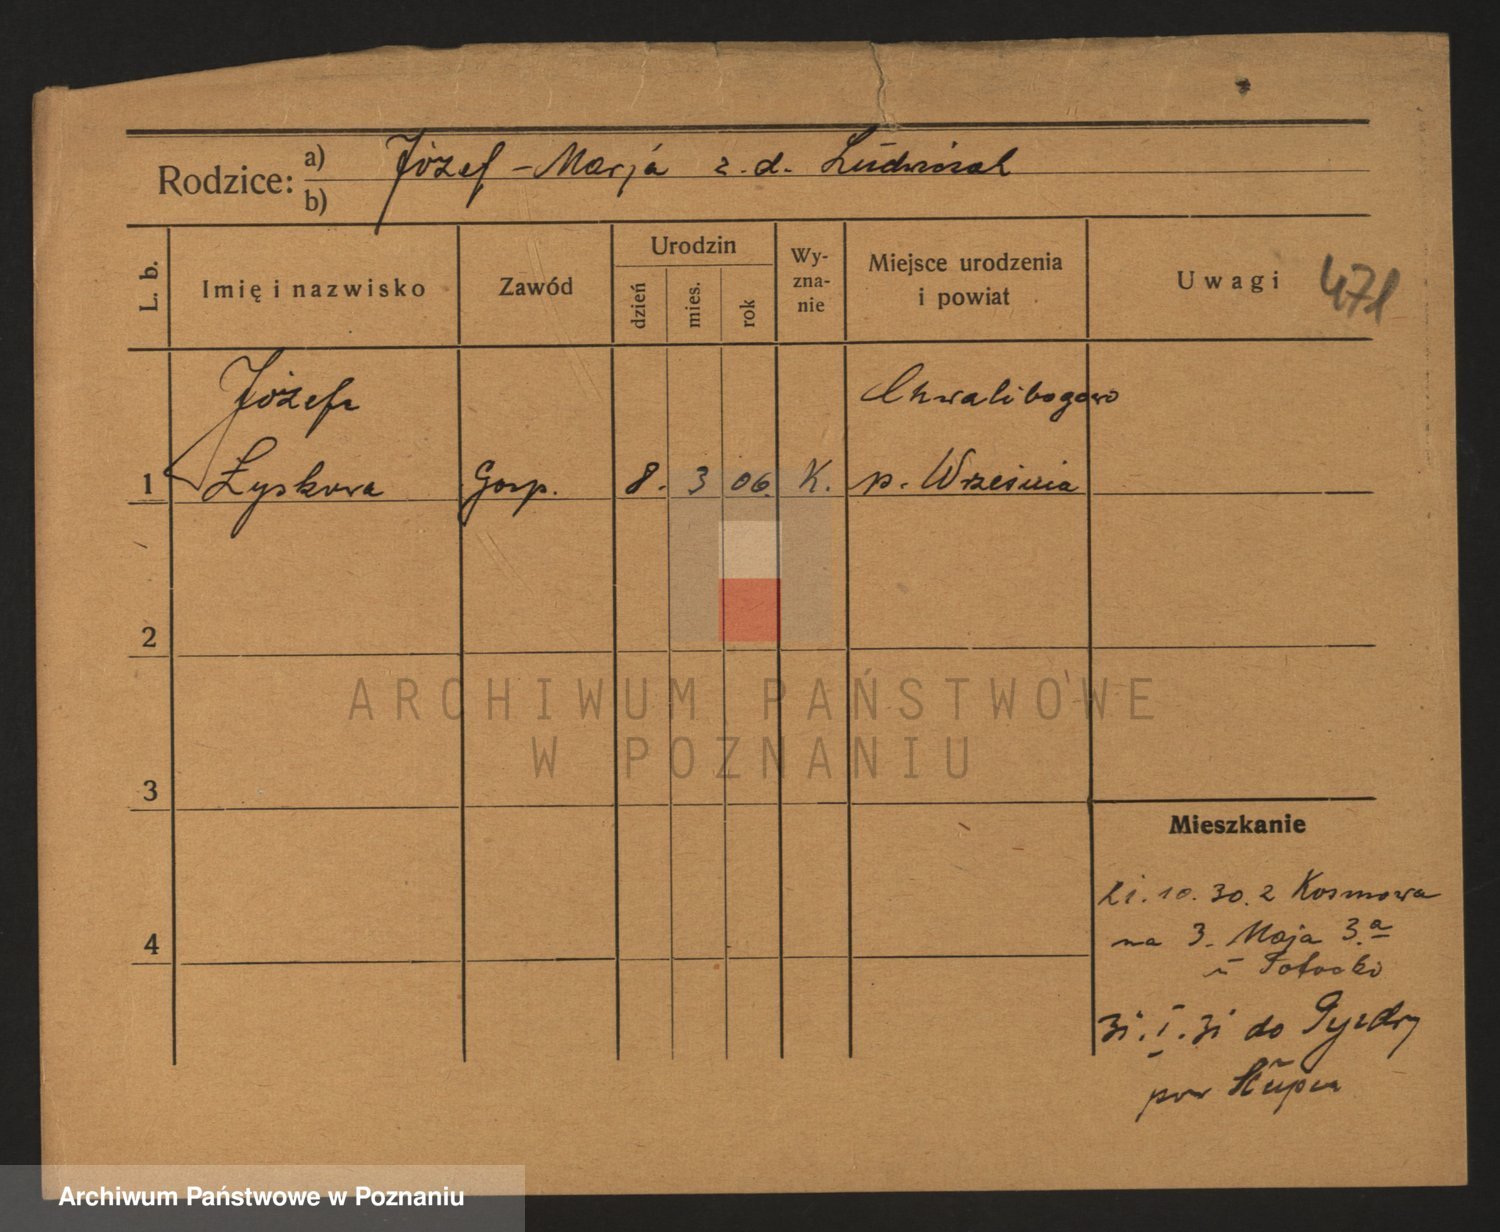 Rodzice: a) b) Józef - Marja z. d. Ludwiczak
L. b.
Imię i nazwisko
Zawód
Urodzin
dzień
mies.
rok
Wy-
zna-
nie
Miejsce urodzenia
i powiat
Uwagi
471
Józefa
Chwalibogowo
1 Łyskowa Gosp. 8. 3 06. K. p. Września
2
ARCHIWUM PAŃSTWOWE
W POZNANIU
3
Mieszkanie
21.10.30. z Kosmowa
na 3. Maja 3.a
4
31.I.31 do Pyzdry
pow Słupca
Archiwum Państwowe w Poznaniu